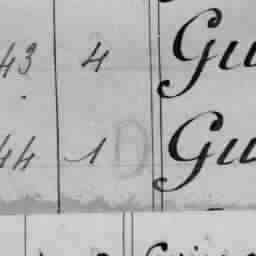 43 4 Gu
44 1 D Gu